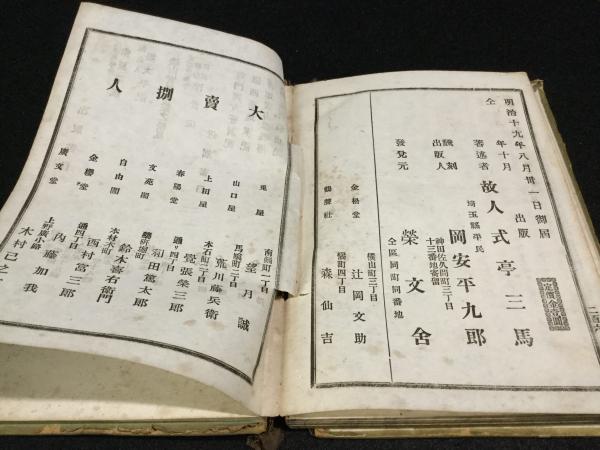 明治十九年八月卅一日御届
仝 年十月 出版
定價金壹圓
著述者 故人 式亭三馬
埼玉縣平民
飜刻出版人 岡安平九郎
神田佐久間町三丁目
十三番地寄留
發兌元 榮文舍
仝區同町同番地
金松堂 辻岡文助
横山町三丁目
鶴聲社 森仙吉
大賣捌人
兎屋 望月誠
南鍋町一丁目
山口屋 荒川藤兵衛
馬喰町二丁目
上田屋 覺張榮三郎
本石町二丁目
春陽堂 和田篤太郎
通リ四丁目
文苑閣 鈴木喜右衛門
自由閣 西村富三郎
本材木町
金櫻堂 内藤加我
通四丁目
廣文堂 木村己之
上野廣小路